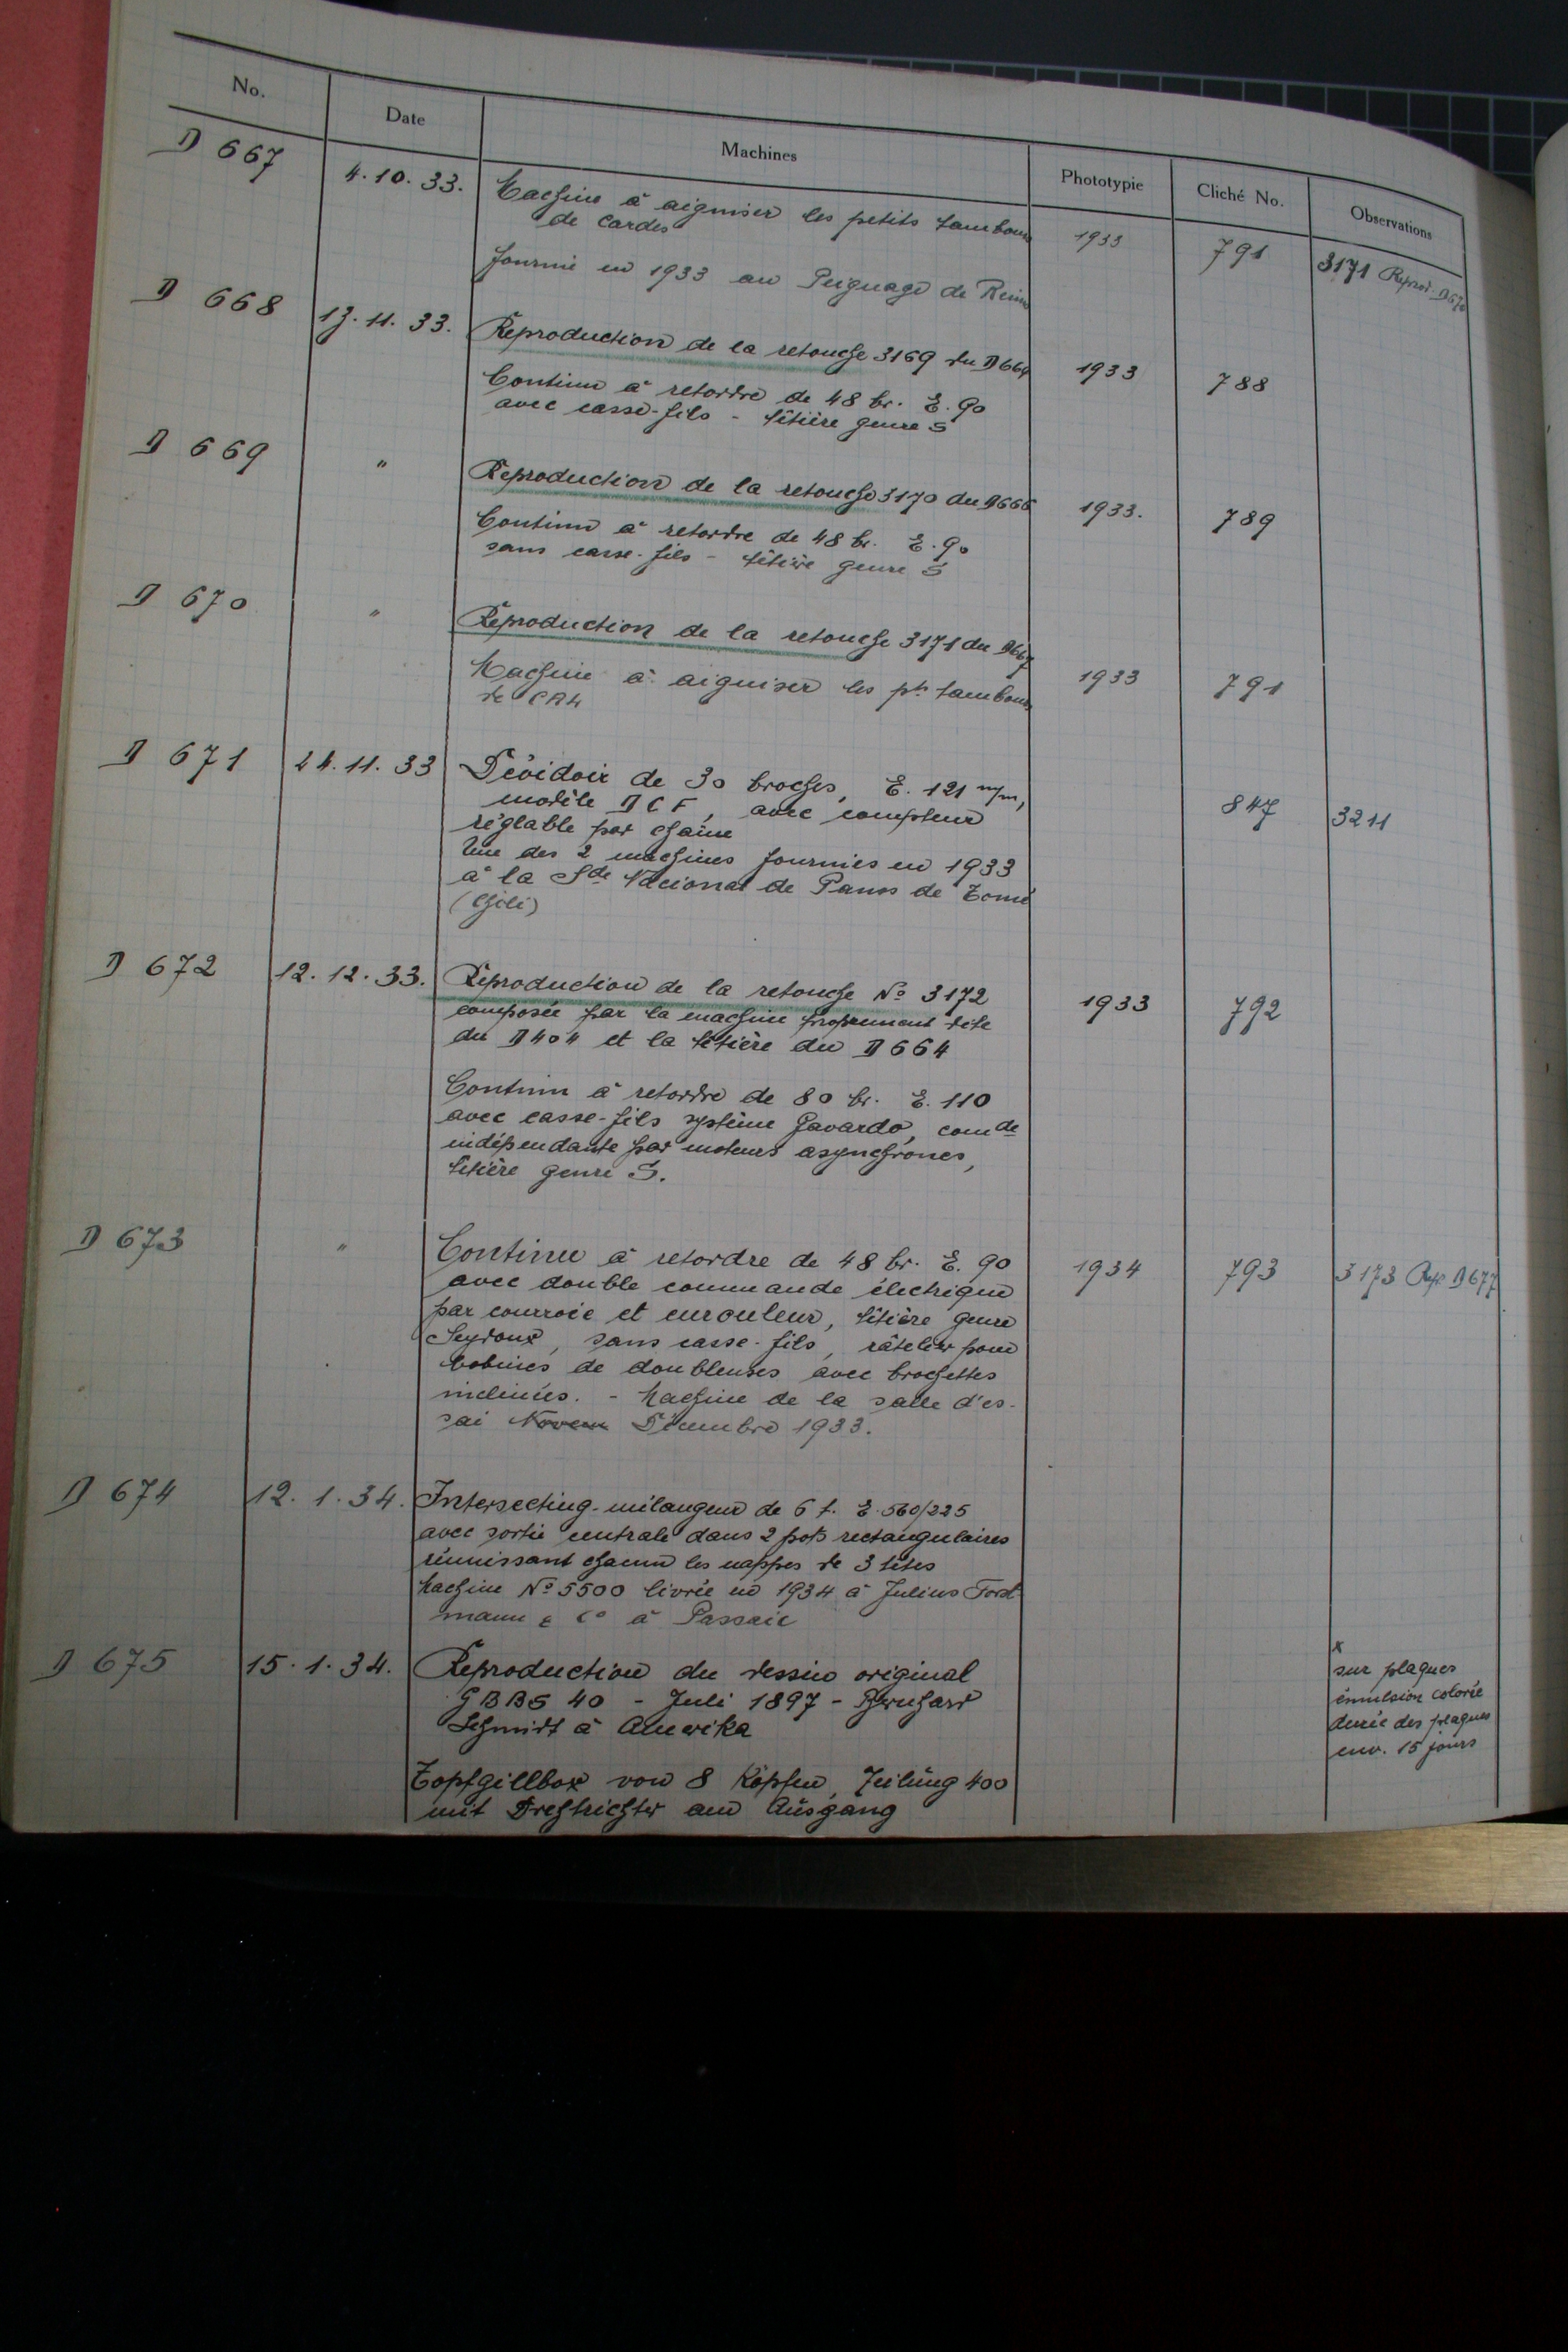 No. Date Machines Phototypie Cliché No. Observations
D 667 4.10.33. Machine à aiguiser les petits tambours 1933 791 3171 Reprod. D670
de cardes
fournie en 1933 au Peignage de Reims
D 668 13.11.33. Reproduction de la retouche 3169 du D664 1933 788
Continu à retordre de 48 br. E. 90
avec casse-fils - têtière genre S
D 669 " Reproduction de la retouche 3170 du D666 1933. 789
Continu à retordre de 48 br. E. 90
sans casse-fils - têtière genre S
D 670 " Reproduction de la retouche 3171 du D667 1933 791
Machine à aiguiser les pts tambours
de CR4
D 671 24.11.33 Dévidoir de 30 broches, E. 121 m/m, 847 3211
modèle DCF, avec compteur
réglable par chaîne
Une des 2 machines fournies en 1933
à la Sde Nacional de Panos de Tomé
(Chili)
D 672 12.12.33. Reproduction de la retouche No 3172 1933 792
composée par la machine proprement dite
du D404 et la têtière du D664
Continu à retordre de 80 br. E. 110
avec casse-fils système Gavardo, comde
indépendante par moteurs asynchrones,
têtière genre S.
D 673 " Continu à retordre de 48 br. E. 90 1934 793 3173 Rep. D677
avec double commande électrique
par courroie et enrouleur, têtière genre
Seydoux, sans casse-fils, râtelier pour
bobines de doubleuses avec brochettes
inclinées. - Machine de la salle d'es-
sai Novem Décembre 1933.
D 674 12.1.34. Intersecting-mélangeur de 6 t. E. 560/225
avec sortie centrale dans 2 pots rectangulaires
réunissant chacun les nappes de 3 têtes
Machine No 5500 livrée en 1934 à Julius Forst-
mann & Co à Passaic
D 675 15.1.34. Reproduction du dessin original x
GBBS 40 - Juli 1897 - Bernhard sur plaques
Schmidt à Amerika émulsion colorée
durée des plaques
env. 15 jours
Topfgillbox von 8 Köpfen, Teilung 400
mit Drehtrichter am Ausgang